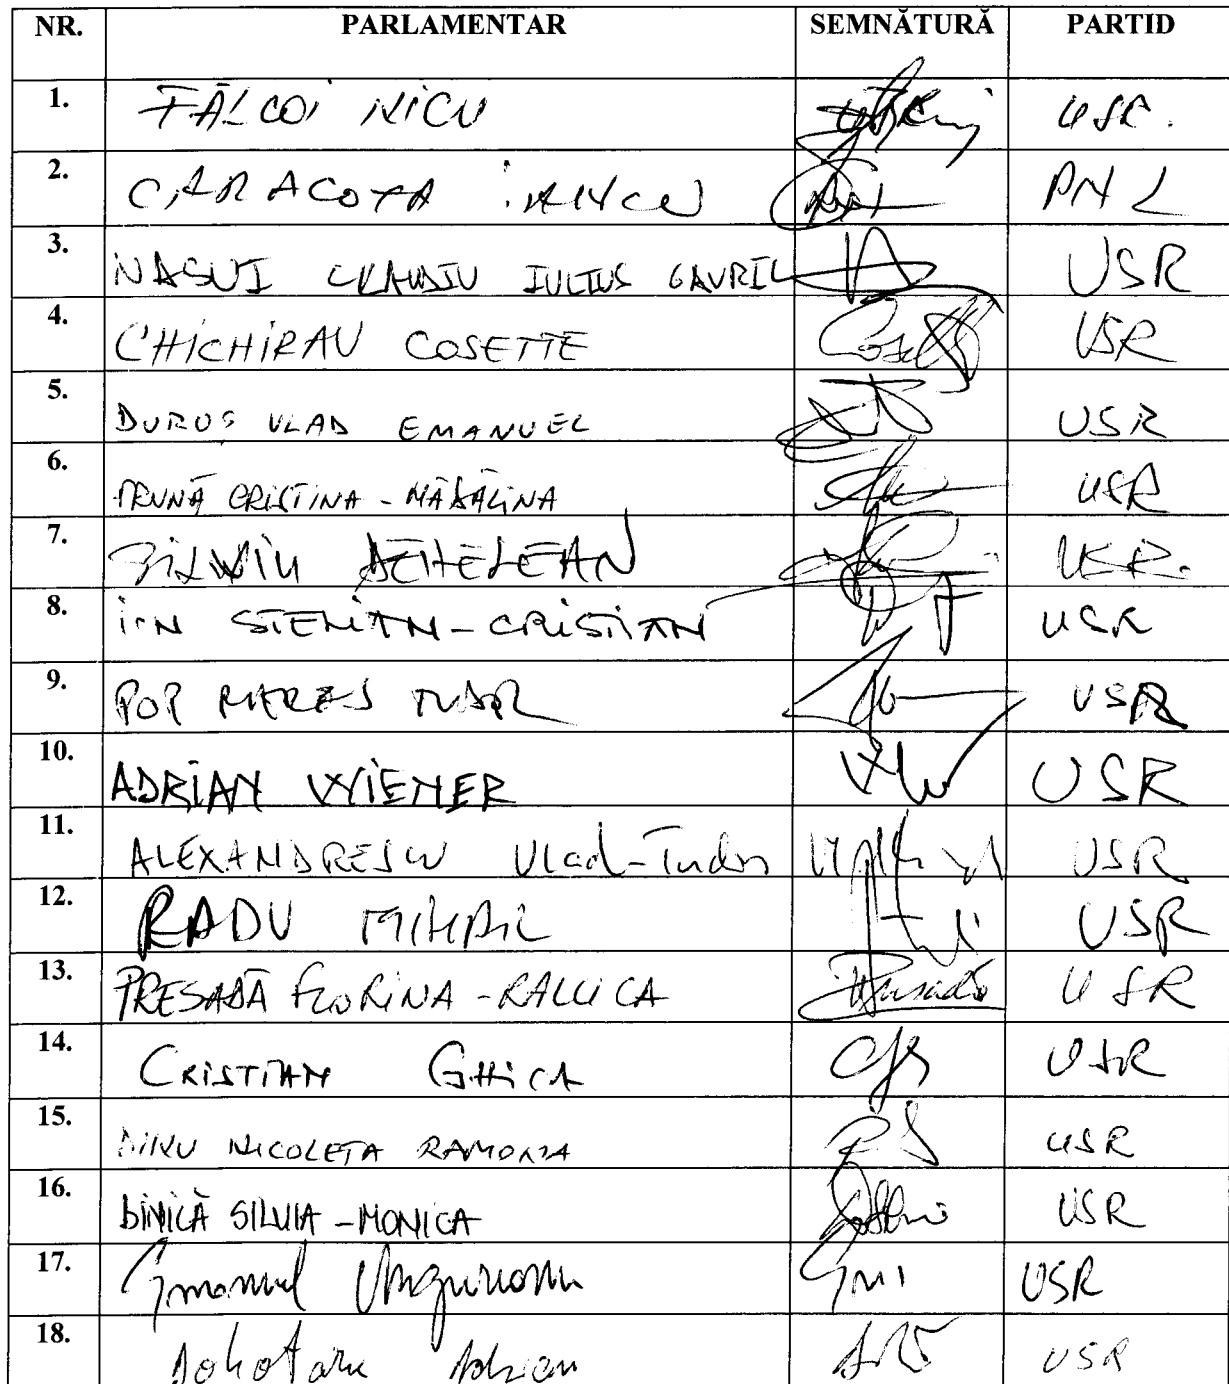 NR. PARLAMENTAR SEMNĂTURĂ PARTID
1. FĂLCOI NICU USR.
2. CARACOTA IANCU PNL
3. NASUI CLAUDIU IULIUS GAVRIL USR
4. CHICHIRAU COSETTE USR
5. DURUȘ VLAD EMANUEL USR
6. PRUNĂ CRISTINA - MĂDĂLINA USR
7. DEHELEAN USR.
8. ION STELIAN - CRISTIAN USR
9. POP USR
10. ADRIAN WIENER USR
11. ALEXANDRESCU Vlad-Tudor USR
12. RADU MIHAIL USR
13. PRESADĂ FLORINA - RALUCA USR
14. CRISTIAN GHICA USR
15. DINU NICOLETA RAMONA USR
16. DINICĂ SILVIA - MONICA USR
17. Emanuel Ungureanu USR
18. Dohotaru Adrian USR